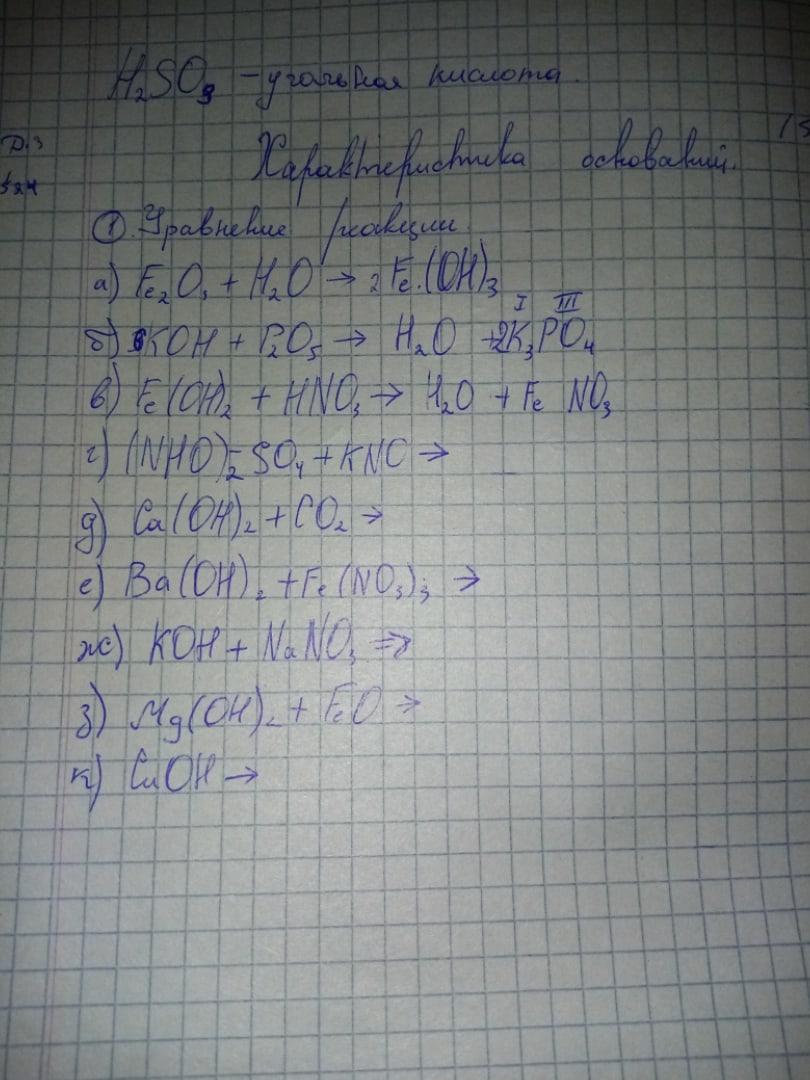 H₂SO₃ - угольная кислота.
Д.З
Характеристика оснований.
① Уравнение реакции.
а) Fe₂O₃ + H₂O → 2Fe(OH)₃
I III
б) 6KOH + P₂O₅ → H₂O + 2K₃PO₄
в) Fe(OH)₂ + HNO₃ → H₂O + Fe NO₃
г) (NHO)₂SO₄ + KNO →
д) Ca(OH)₂ + CO₂ →
е) Ba(OH)₂ + Fe(NO₃)₃ →
ж) KOH + NaNO₃ →
з) Mg(OH)₂ + FeO →
к) CuOH →